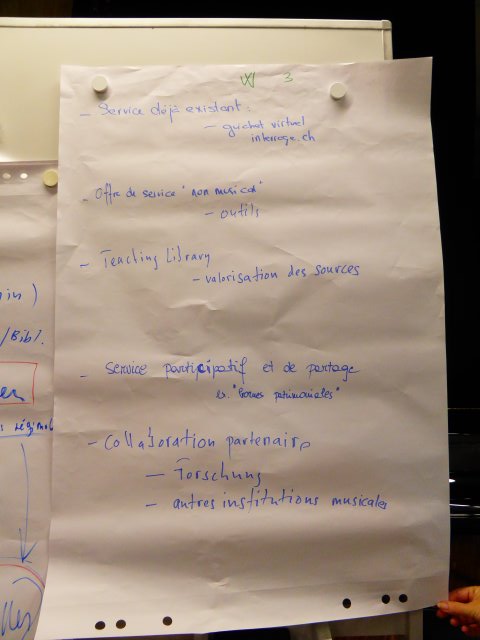 W 3
- Service déjà existant :
- guichet virtuel
interroge.ch
- Offre de service "non musical"
- outils
- Teaching Library
- valorisation des sources
- Service participatif et de partage
ex. "bornes patrimoniales"
- Collaboration partenaire
- Forschung
- autres institutions musicales
/Bibl.